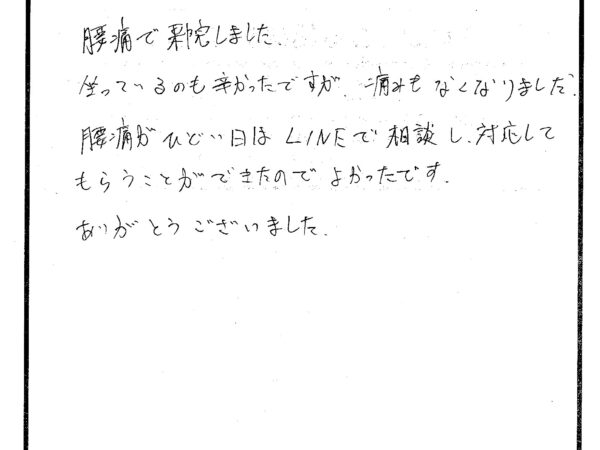 腰痛で来院しました.
坐っているのも辛かったですが、痛みもなくなりました.
腰痛がひどい日はLINEで相談し、対応して
もらうことができたのでよかったです.
ありがとうございました.